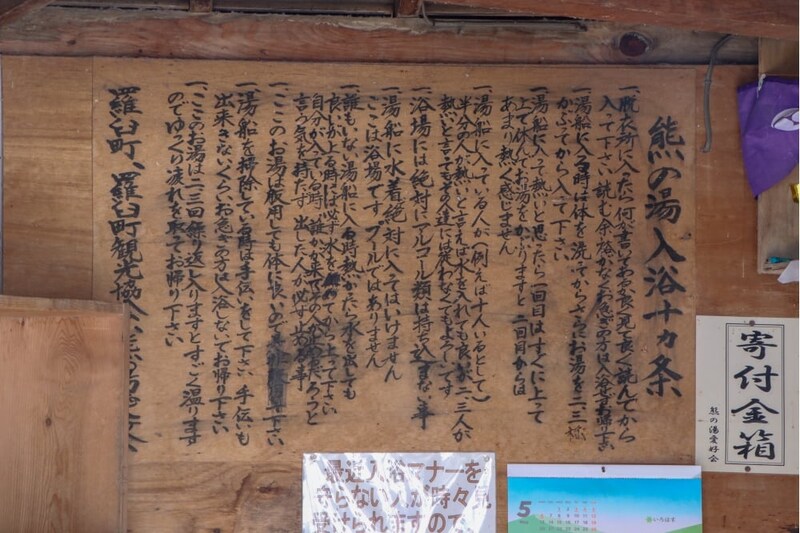 熊の湯入浴十ヵ条
一、脱衣所に入ったら何が書いてあるか良く見て良く読んでから
入って下さい 読む余裕がなくお急ぎの方は入浴せずお帰り下さい
一、湯船に入る時は体を洗ってからさらにお湯を二、三
かぶってから入って下さい
一、湯船に入って熱いと思ったら一回目はすぐに上って
上で休んでお湯をかぶりますと二回目からは
あまり熱く感じません
一、湯船に入っている人が(例えば十人いるとして)
半分の人が熱いと言えば水を入れても良いが二、三人が
熱いと言ってもその達には従わなくてもよろしいです
一、浴場には絶対にアルコール類は持ち込まない事
一、湯船に水着絶対に入てはいけません
ここは浴場です。プールではありません
一、誰もいない湯船に入る時熱かたら水を出しても
良いが上る時には必ず水を止めてから上って下さい
自分が入ている時、誰かが来てその人が止めるだろうと
言う気を持たず出した人が必ず止める事
一、ここのお湯は飲用しても体に良いので
下さい
一、湯船を掃除している時は手伝いをして下さい 手伝いも
出来きないくらいお急ぎの方は入浴しないでお帰り下さい
一、ここのお湯は二、三回繰り返し入りますとすごく温ります
のでゆっくり疲れを取てお帰り下さい
羅臼町、羅臼町観光協会
寄付金箱
熊の湯愛好会
最近入浴マナーを
守らない人が時々見
受けられますので、
5
いちはま